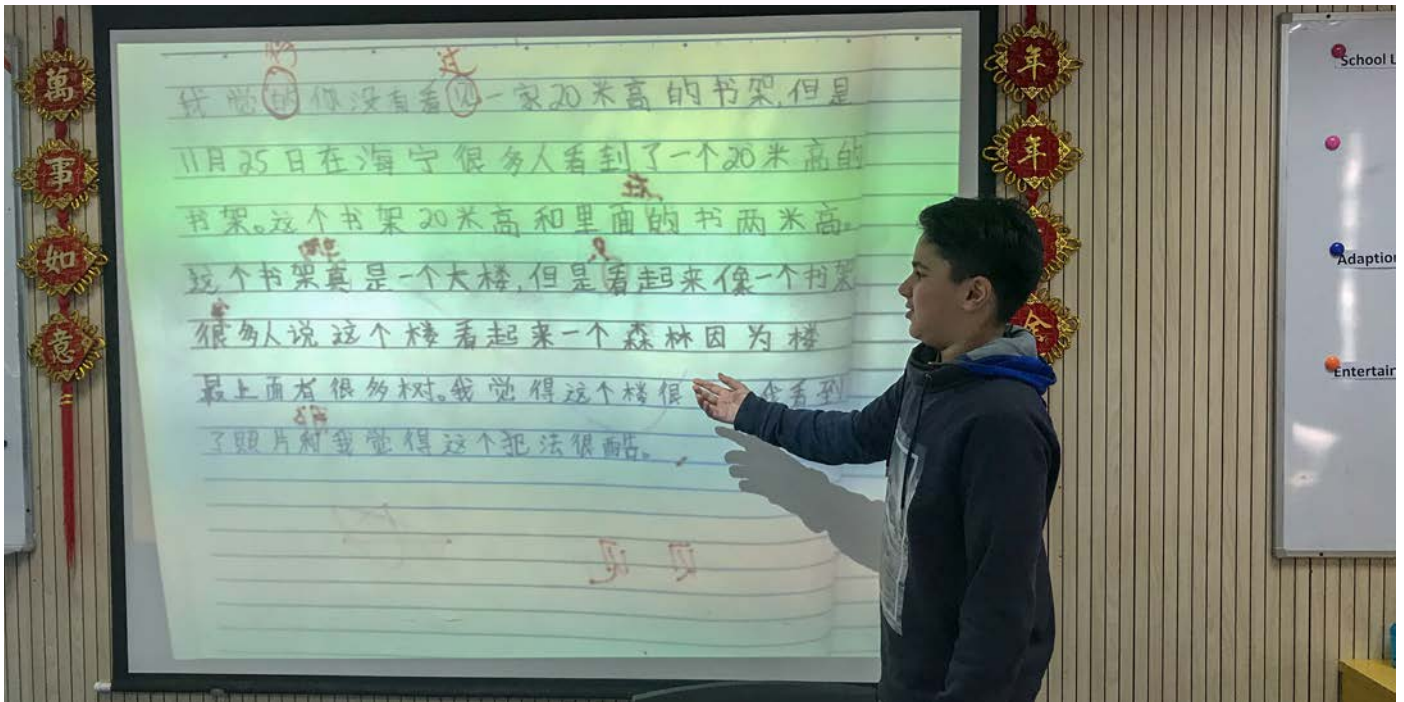 萬事如意
年年
余
我觉的你没有看见一家20米高的书架,但是
过
11月25日在海宁很多人看到了一个20米高的
书架。这个书架20米高和里面的书两米高。
这个书架真是一个大楼,但是看起来像一个书架
很多人说这个楼看起来一个森林因为楼
最上面有很多树。我觉得这个楼很
看到
了照片和我觉得这个犯法很酷。
见 见
School L
Adaption
Entertain